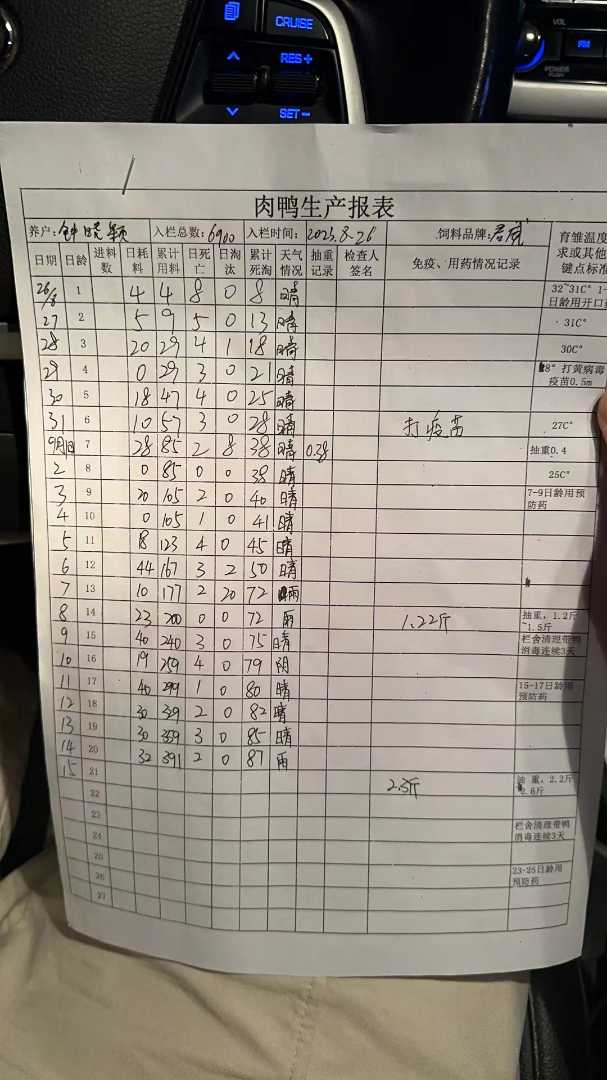 CRUISE
RES+
SET-
VOL
FM
POWER
PUSH
肉鸭生产报表
养户: 钟晓颖 入栏总数: 6900 入栏时间: 2025.8-26 饲料品牌: 君威 育雏温度
求或其他
键点标准
日期 日龄 进料数 日耗料 累计用料 日死亡 日淘汰 累计死淘 天气情况 抽重记录 检查人签名 免疫、用药情况记录
26/8 1 4 4 8 0 8 晴 32~31C° 1-
日龄用开口
27 2 5 9 5 0 13 晴 31C°
28 3 20 29 4 1 18 晴 30C°
29 4 0 29 3 0 21 晴 8° 打黄病毒
疫苗0.5m
30 5 18 47 4 0 25 晴
31 6 10 57 3 0 28 晴 打疫苗 27C°
9月1日 7 28 85 2 8 38 晴 0.38 抽重0.4
2 8 0 85 0 0 38 晴 25C°
3 9 20 105 2 0 40 晴 7-9日龄用预
防药
4 10 0 105 1 0 41 晴
5 11 8 123 4 0 45 晴
6 12 44 167 3 2 50 晴
7 13 10 177 2 20 72 雨
8 14 23 200 0 0 72 雨 1.22斤 抽重，1.2斤
~1.5斤
9 15 40 240 3 0 75 晴 栏舍清理带鸭
消毒连续3天
10 16 19 259 4 0 79 阴
11 17 40 299 1 0 80 晴 15-17日龄用
预防药
12 18 30 329 2 0 82 晴
13 19 30 359 3 0 85 晴
14 20 32 391 2 0 87 雨
15 21 2.5斤 抽 重，2.2斤
2.6斤
22
23 栏舍清理带鸭
消毒连续3天
24
25 23-25日龄用
预防药
26
27